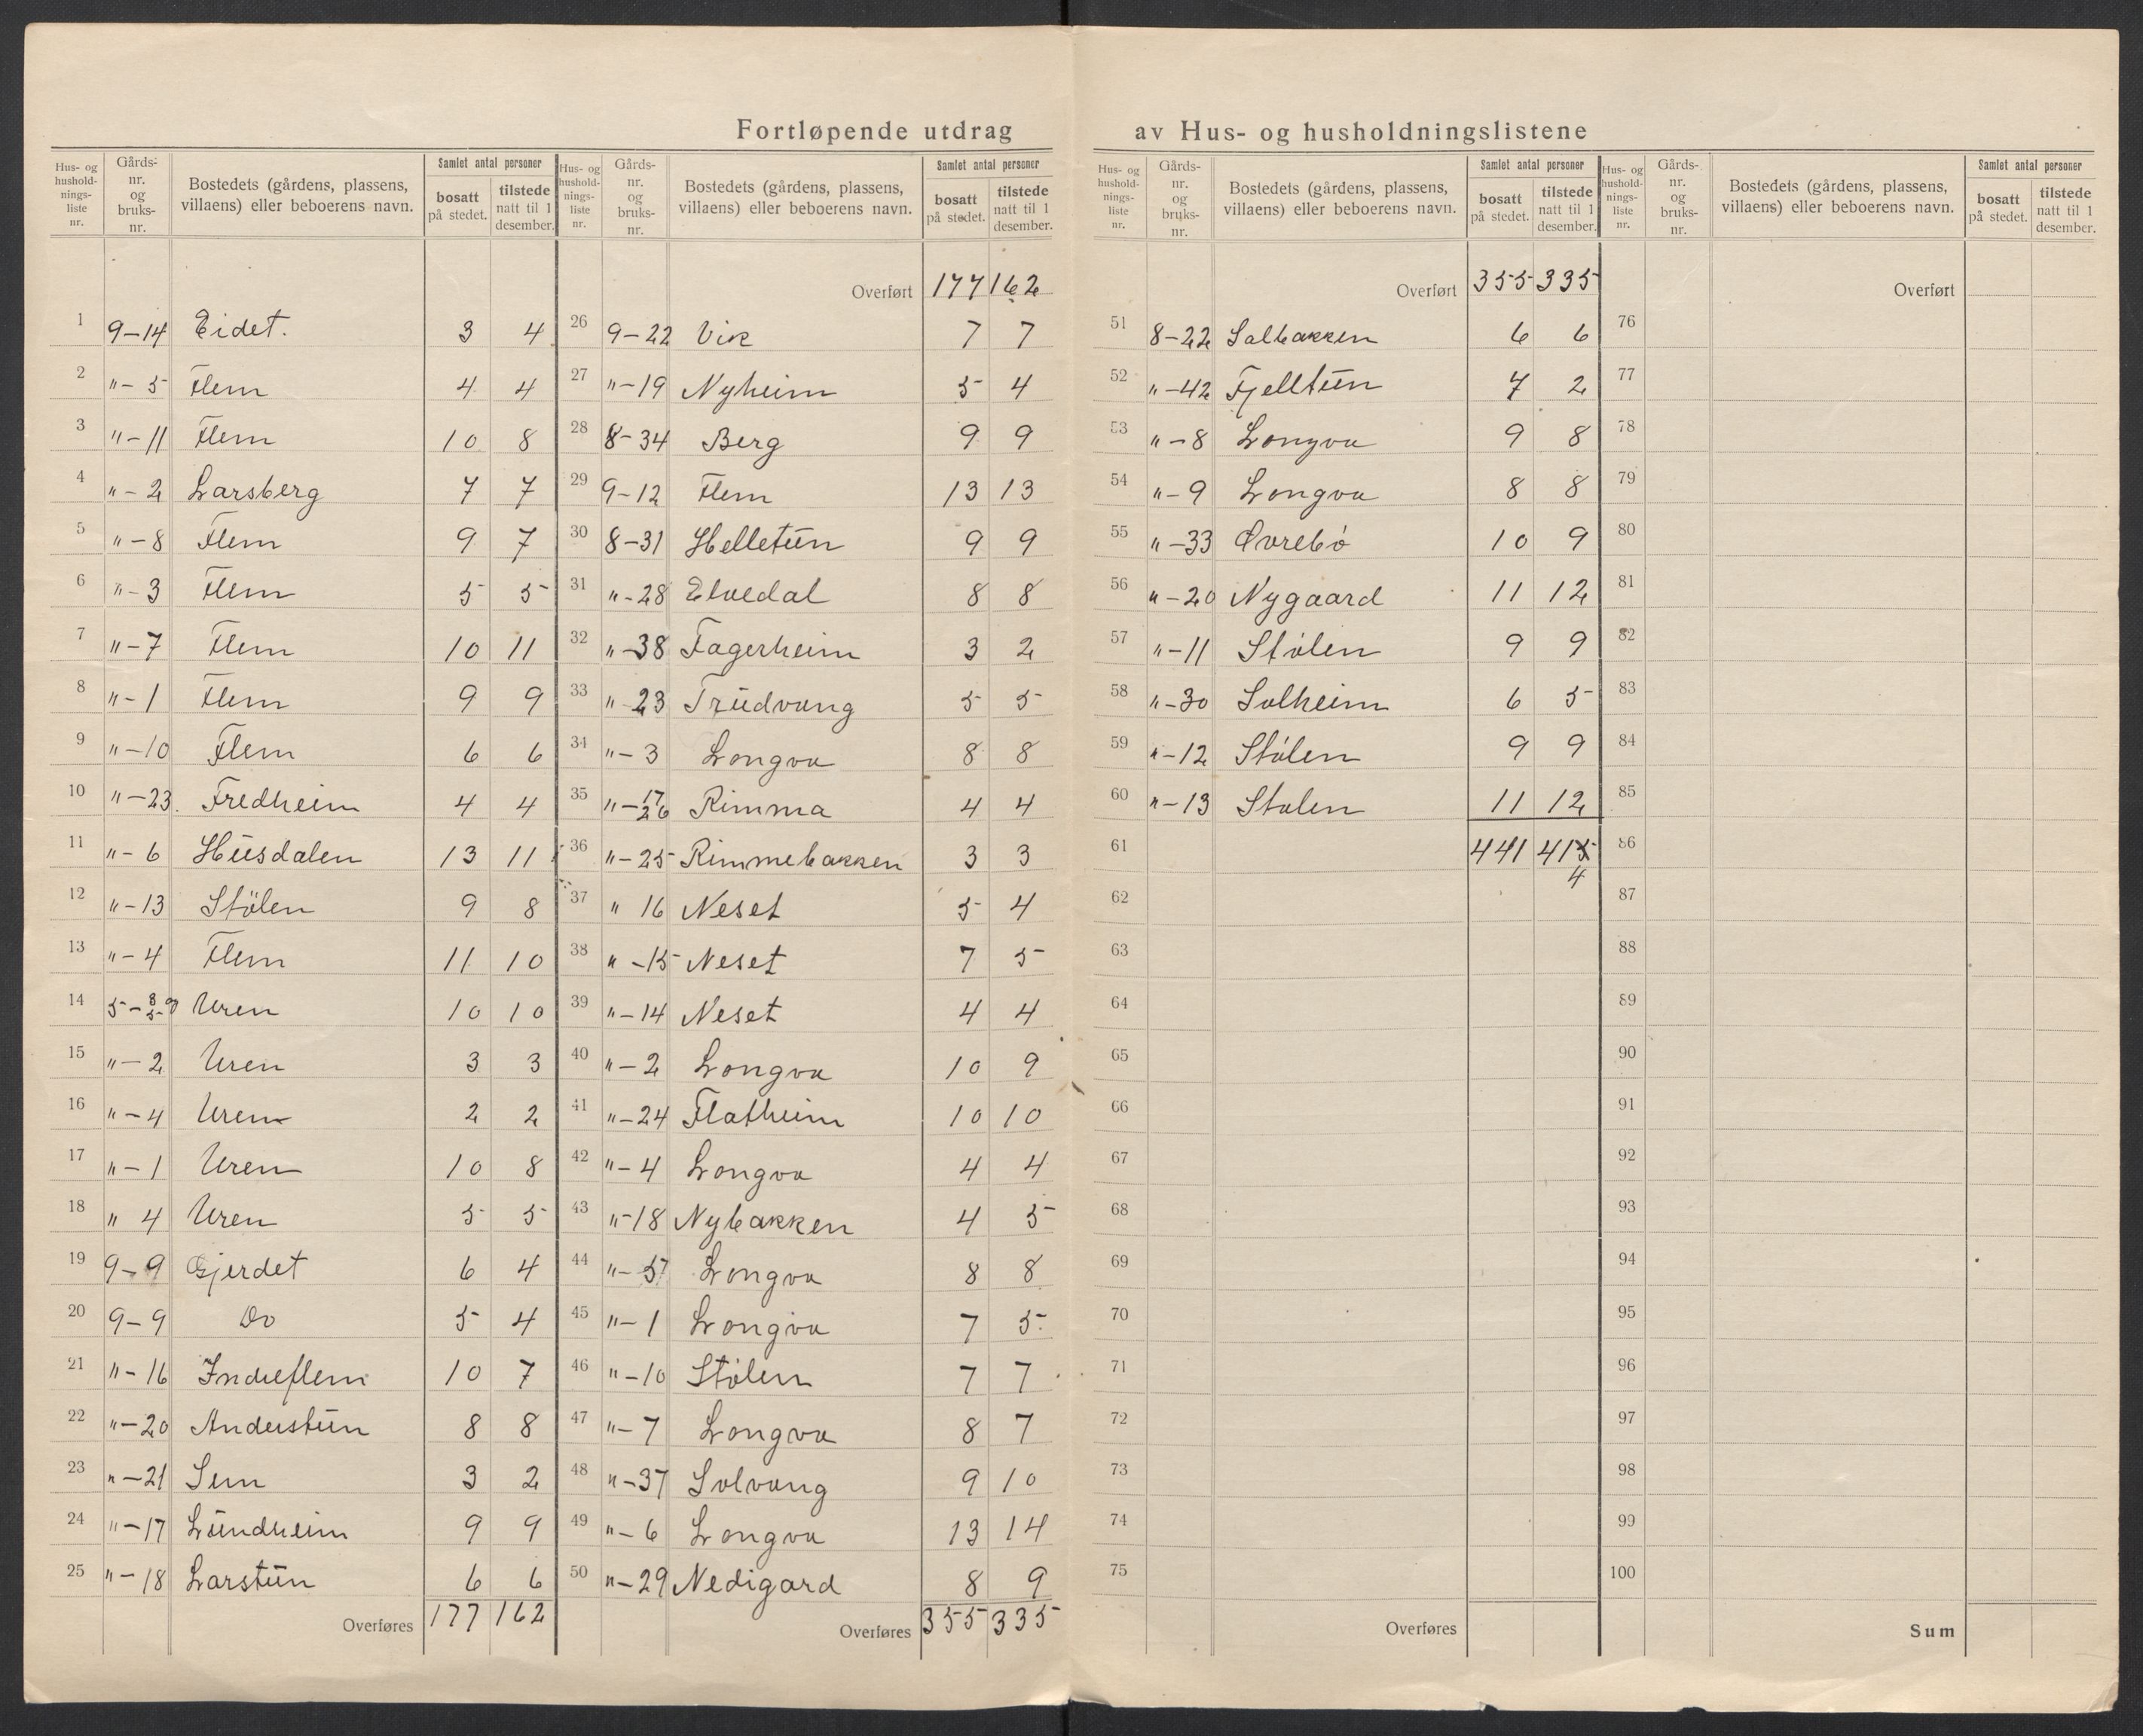 Fortløpende utdrag av Hus- og husholdningslistene
Hus- og husholdnings-liste nr. | Gårds-nr. og bruks-nr. | Bostedets (gårdens, plassens, villaens) eller beboerens navn. | Samlet antal personer | bosatt på stedet. | tilstede natt til 1 desember.
1 9–14 Eidet. 3 4
2 "–5 Flem 4 4
3 "–11 Flem 10 8
4 "–2 Larsberg 7 7
5 "–8 Flem 9 7
6 "–3 Flem 5 5
7 "–7 Flem 10 11
8 "–1 Flem 9 9
9 "–10 Flem 6 6
10 "–23. Fredheim 4 4
11 "–6 Hŭsdalen 13 11
12 "–13 Stölen 9 8
13 "–4 Flem 11 10
14 5– Uren 10 10
15 "–2 Uren 3 3
16 "–4 Uren 2 2
17 "–1 Uren 10 8
18 " 4 Uren 5 5
19 9–9 Gjerdet 6 4
20 9–9 Do 5 4
21 "–16 Indreflem 10 7
22 "–20 Anderstŭn 8 8
23 "–21 Sem 3 2
24 "–17 Lŭndheim 9 9
25 "–18 Larstŭn 6 6
Overføres 177 162
Hus- og husholdnings-liste nr. | Gårds-nr. og bruks-nr. | Bostedets (gårdens, plassens, villaens) eller beboerens navn. | Samlet antal personer | bosatt på stedet. | tilstede natt til 1 desember.
Overført 177 162
26 9–22 Vik 7 7
27 "–19 Nyheim 5 4
28 8–34 Berg 9 9
29 9–12 Flem 13 13
30 8–31 Helletŭn 9 9
31 "–28 Elvedal 8 8
32 "–38 Fagerheim 3 2
33 "–23 Trŭdvang 5 5
34 "–3 Longva 8 8
35 "–17 26 Rimma 4 4
36 "–25 Rimmebakken 3 3
37 " 16 Neset 5 4
38 "–15 Neset 7 5
39 "–14 Neset 4 4
40 "–2 Longva 10 9
41 "–24 Flatheim 10 10
42 "–4 Longva 4 4
43 "–18 Nybakken 4 5
44 "– Longva 8 8
45 "–1 Longva 7 5
46 "–10 Stølen 7 7
47 "–7 Longva 8 7
48 "–37 Solvang 9 10
49 "–6 Longva 13 14
50 "–29 Nedigard 8 9
Overføres 355 335
Hus- og husholdnings-liste nr. | Gårds-nr. og bruks-nr. | Bostedets (gårdens, plassens, villaens) eller beboerens navn. | Samlet antal personer | bosatt på stedet. | tilstede natt til 1 desember.
Overført 355 335
51 8–22 Solbakken 6 6
52 "–42 Fjelltŭn 7 2
53 "–8 Longva 9 8
54 "–9 Longva 8 8
55 "–33 Øvrebø 10 9
56 "–20 Nygaard 11 12
57 "–11 Stølen 9 9
58 "–30 Solheim 6 5
59 "–12 Stølen 9 9
60 "–13 Stølen 11 12
61 441 415
4
62
63
64
65
66
67
68
69
70
71
72
73
74
75
Overføres
Hus- og husholdnings-liste nr. | Gårds-nr. og bruks-nr. | Bostedets (gårdens, plassens, villaens) eller beboerens navn. | Samlet antal personer | bosatt på stedet. | tilstede natt til 1 desember.
Overført
76
77
78
79
80
81
82
83
84
85
86
87
88
89
90
91
92
93
94
95
96
97
98
99
100
Sum